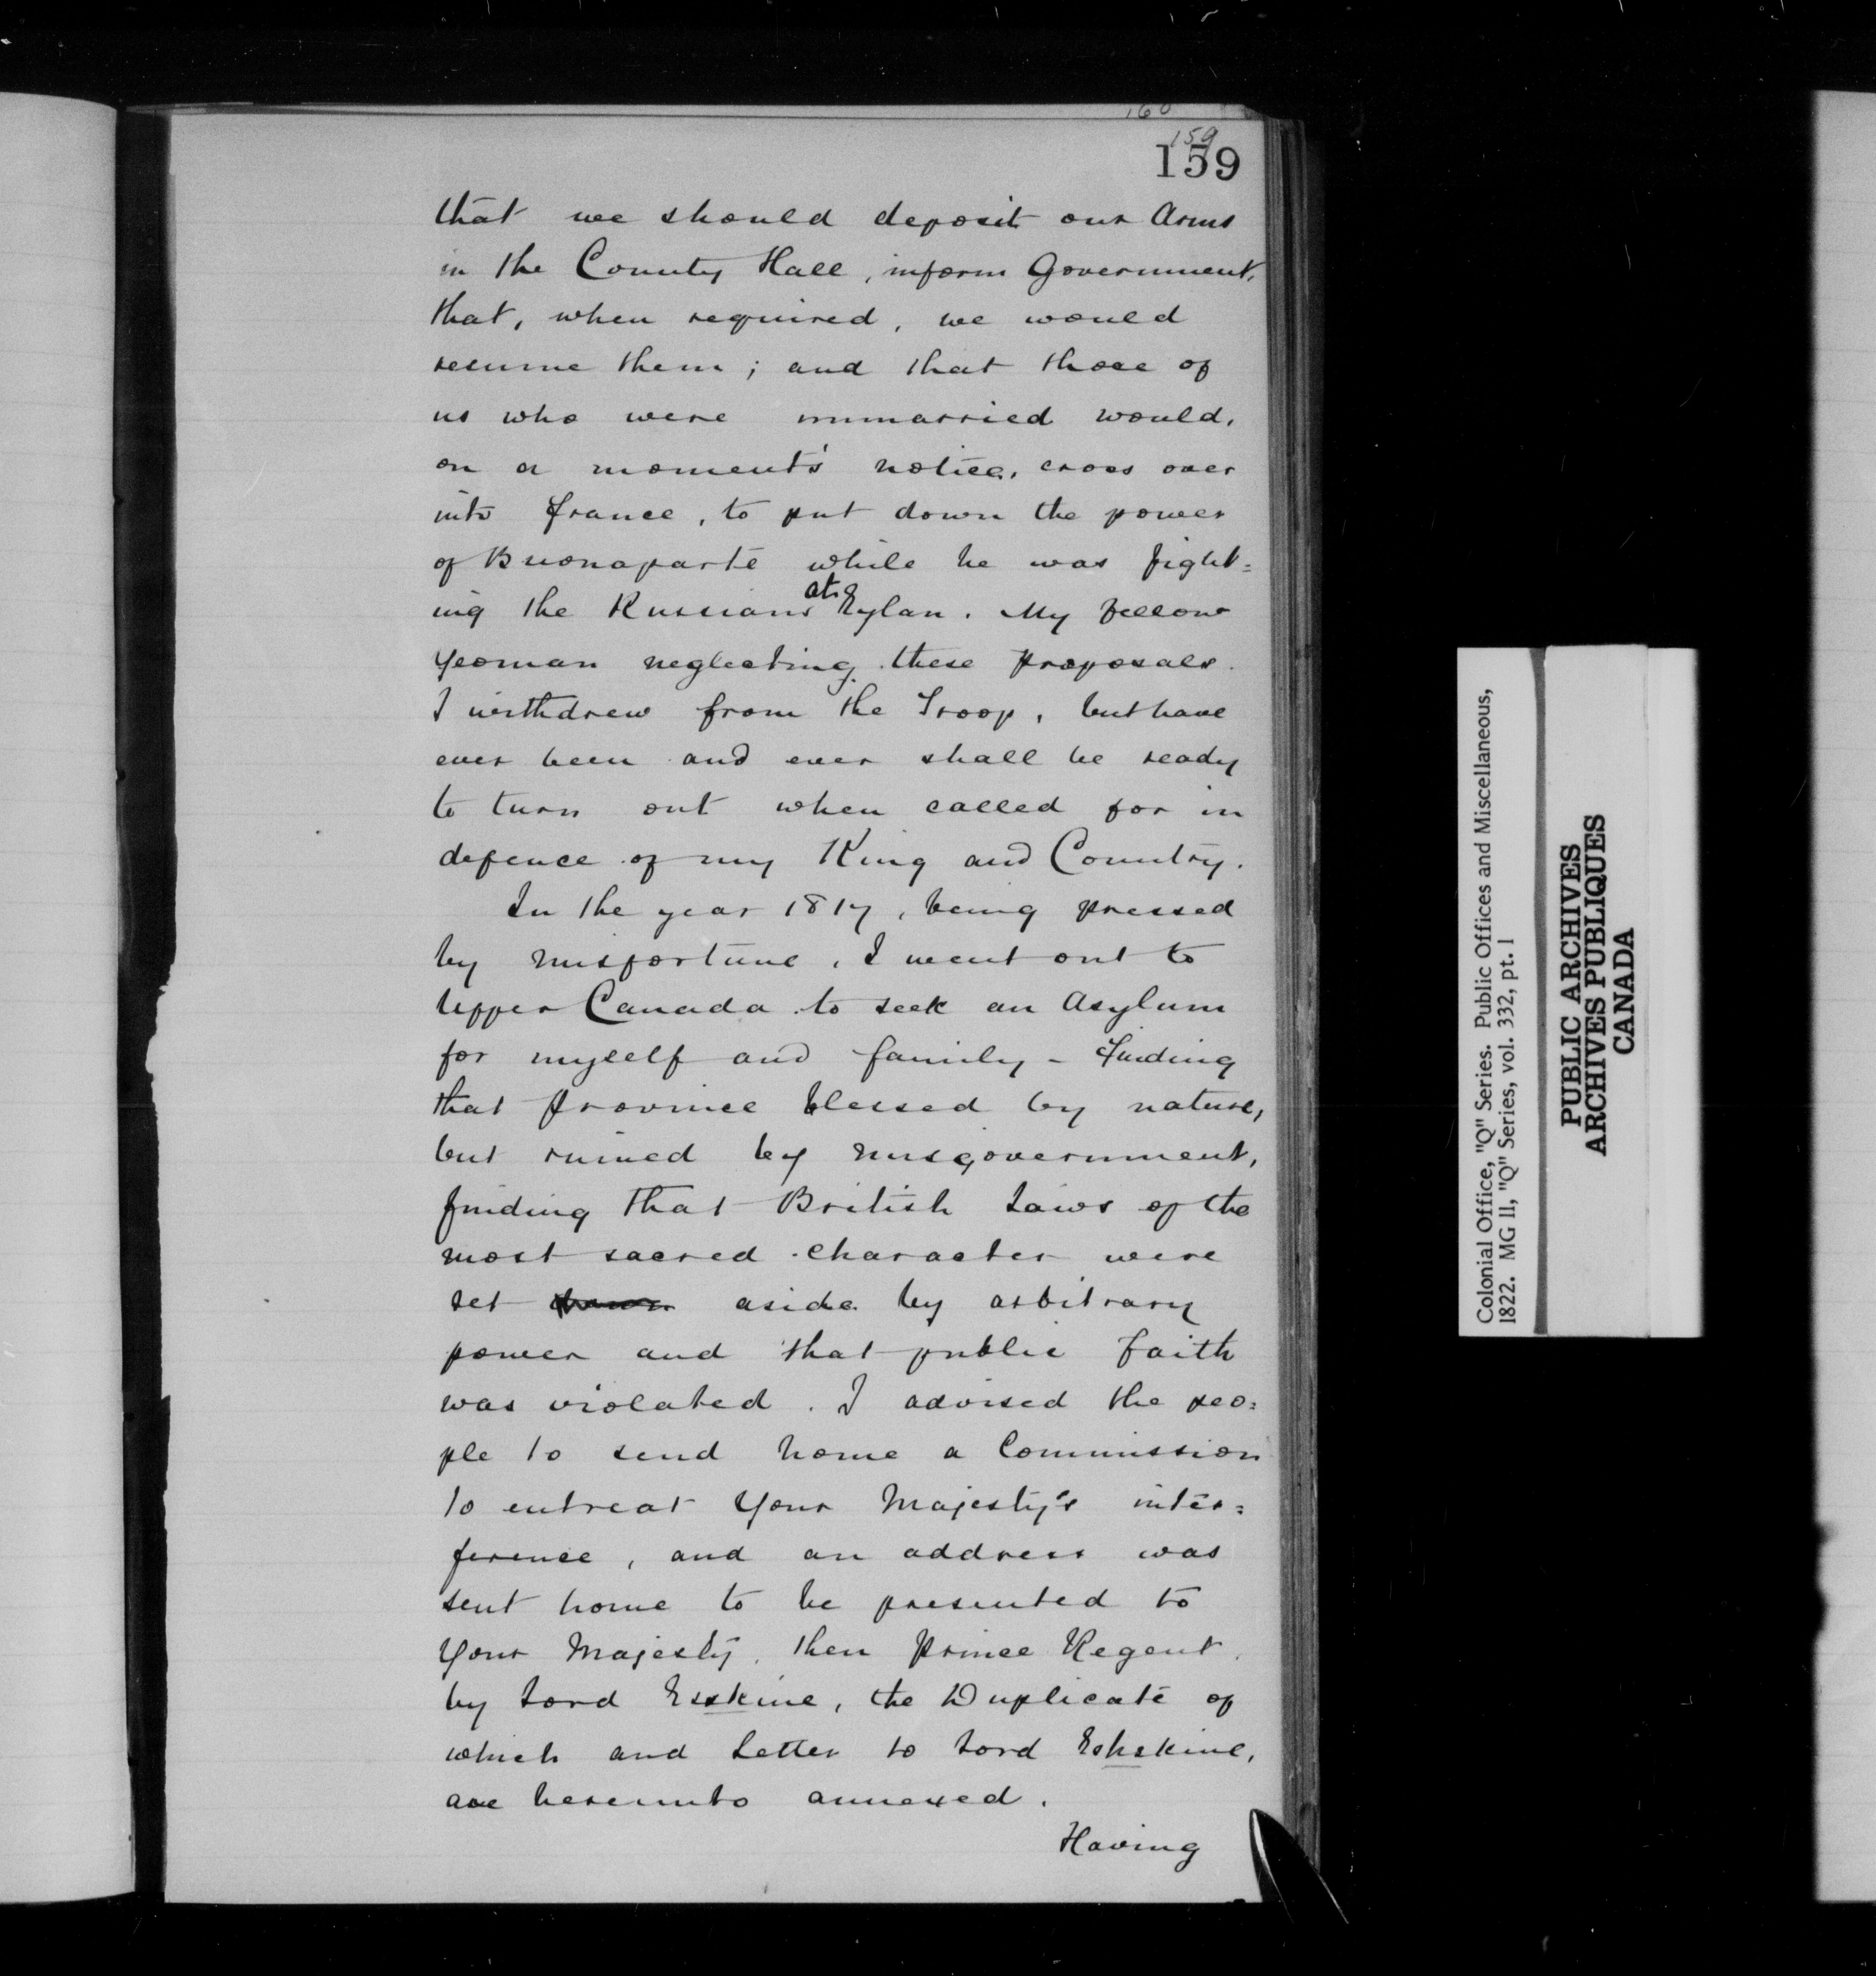 160
159
159
that we should deposit our Arms
in the County Hall, inform Government,
that, when required, we would
resume them; and that those of
us who were unmarried would,
on a moment's notice, cross over
into France, to put down the power
of Buonaparte while he was fight=
ing the Russians at Eylau. My fellow
yeoman neglecting these proposals.
I withdrew from the Troop, but have
ever been and ever shall be ready
to turn out when called for in
defence of my King and Country.
In the year 1817, being pressed
by misfortune, I went out to
Upper Canada to seek an Asylum
for myself and family - Finding
that province blessed by nature,
but ruined by misgovernment,
finding that British Laws of the
most sacred character were
set aside by arbitrary
power and that public Faith
was violated. I advised the peo=
ple to send home a Commission
to entreat Your Majesty's inter=
ference, and an address was
sent home to be presented to
Your Majesty, then Prince Regent,
by Lord Erskine, the Duplicate of
which and Letter to Lord Erhskine,
are hereunto annexed.
Having
Colonial Office, "Q" Series. Public Offices and Miscellaneous,
1822. MG 11, "Q" Series, vol. 332, pt. 1
PUBLIC ARCHIVES
ARCHIVES PUBLIQUES
CANADA